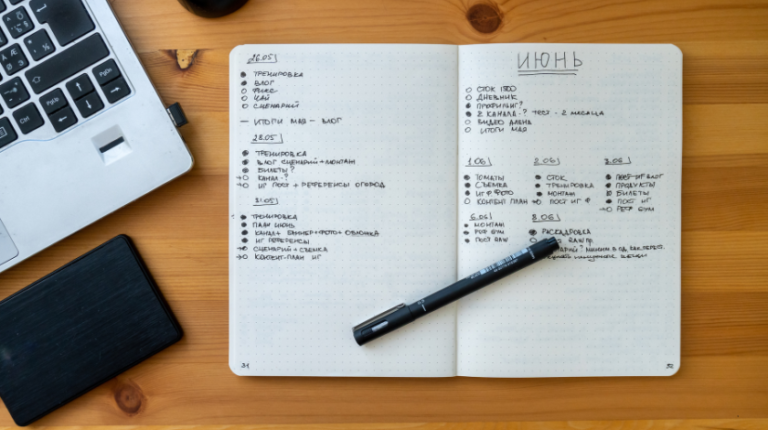 26.05
ТРЕНИРОВКА
ВЛОГ
ЧАЙ
СЦЕНАРИЙ
— ИТОГИ МАЯ — ВЛОГ
28.05
ТРЕНИРОВКА
ВЛОГ СЦЕНАРИЙ + МОНТАЖ
БИЛЕТЫ?
КАНАЛ-?
ИГ ПОСТ + РЕФЕРЕНСЫ
31.05
ТРЕНИРОВКА
ПЛАН ИЮНЬ
КАНАЛ + БАННЕР + ФОТО + ОБЛОЖКА
ИГ РЕФЕРЕНСЫ
СЦЕНАРИЙ + СЪЕМКА
КОНТЕНТ-ПЛАН ИГ
31
ИЮНЬ
СТОК
ДНЕВНИК
ПРОФИЛИНГ?
2 КАНАЛА-? ТЕСТ - 2 МЕСЯЦА
ВИДЕО
ИТОГИ МАЯ
1.06
ТОМАТЫ
СЪЕМКА
ИГ ФОТО
КОНТЕНТ ПЛАН
2.06
СТОК
ТРЕНИРОВКА
МОНТАЖ
ПОСТ ИГ
3.06
ВЛОГ
ПРОДУКТЫ
БИЛЕТЫ
ПОСТ ИГ
6.06
МОНТАЖ
ПОСТ RAW
8.06
РАСКАДРОВКА
RAW